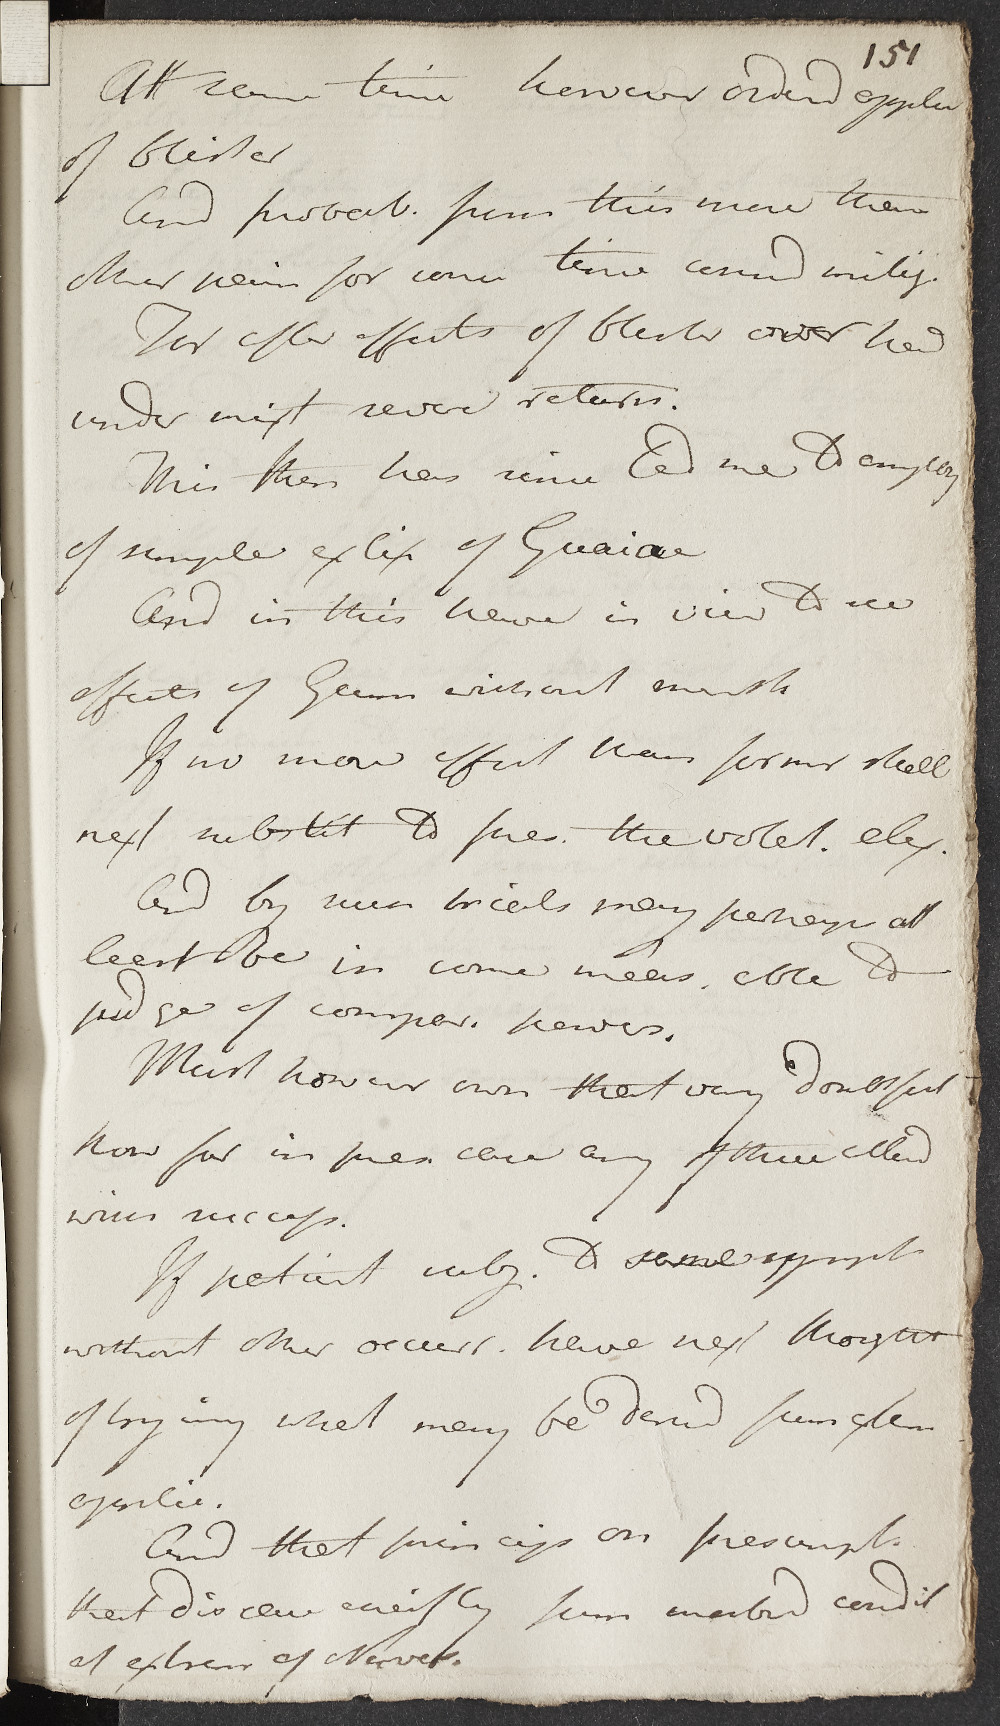 151
Att same time however orderd applic
of blister
And probab. from this more than
other pain for some time consid mitig.
For after effects of blister over had
under wispt severe return.
This then has since Led me To employ
of simple elix of Guaiac
And in this have in view To see
effects of Gum without menst
If no more effect than former shall
next substit To pres. the volat. elix.
And by such trials may perhaps att
least be in some meas. able To
judge of compar. powers.
Must however own that very doubtful
how far in pres case any of these attend
with success.
If patient subj. To same sympt
without other occurr. have next thought
of trying what may be derivd from extern
applic.
And that princip on presumpt.
that disease chiefly from morbid condit
at extrem of Nerves.